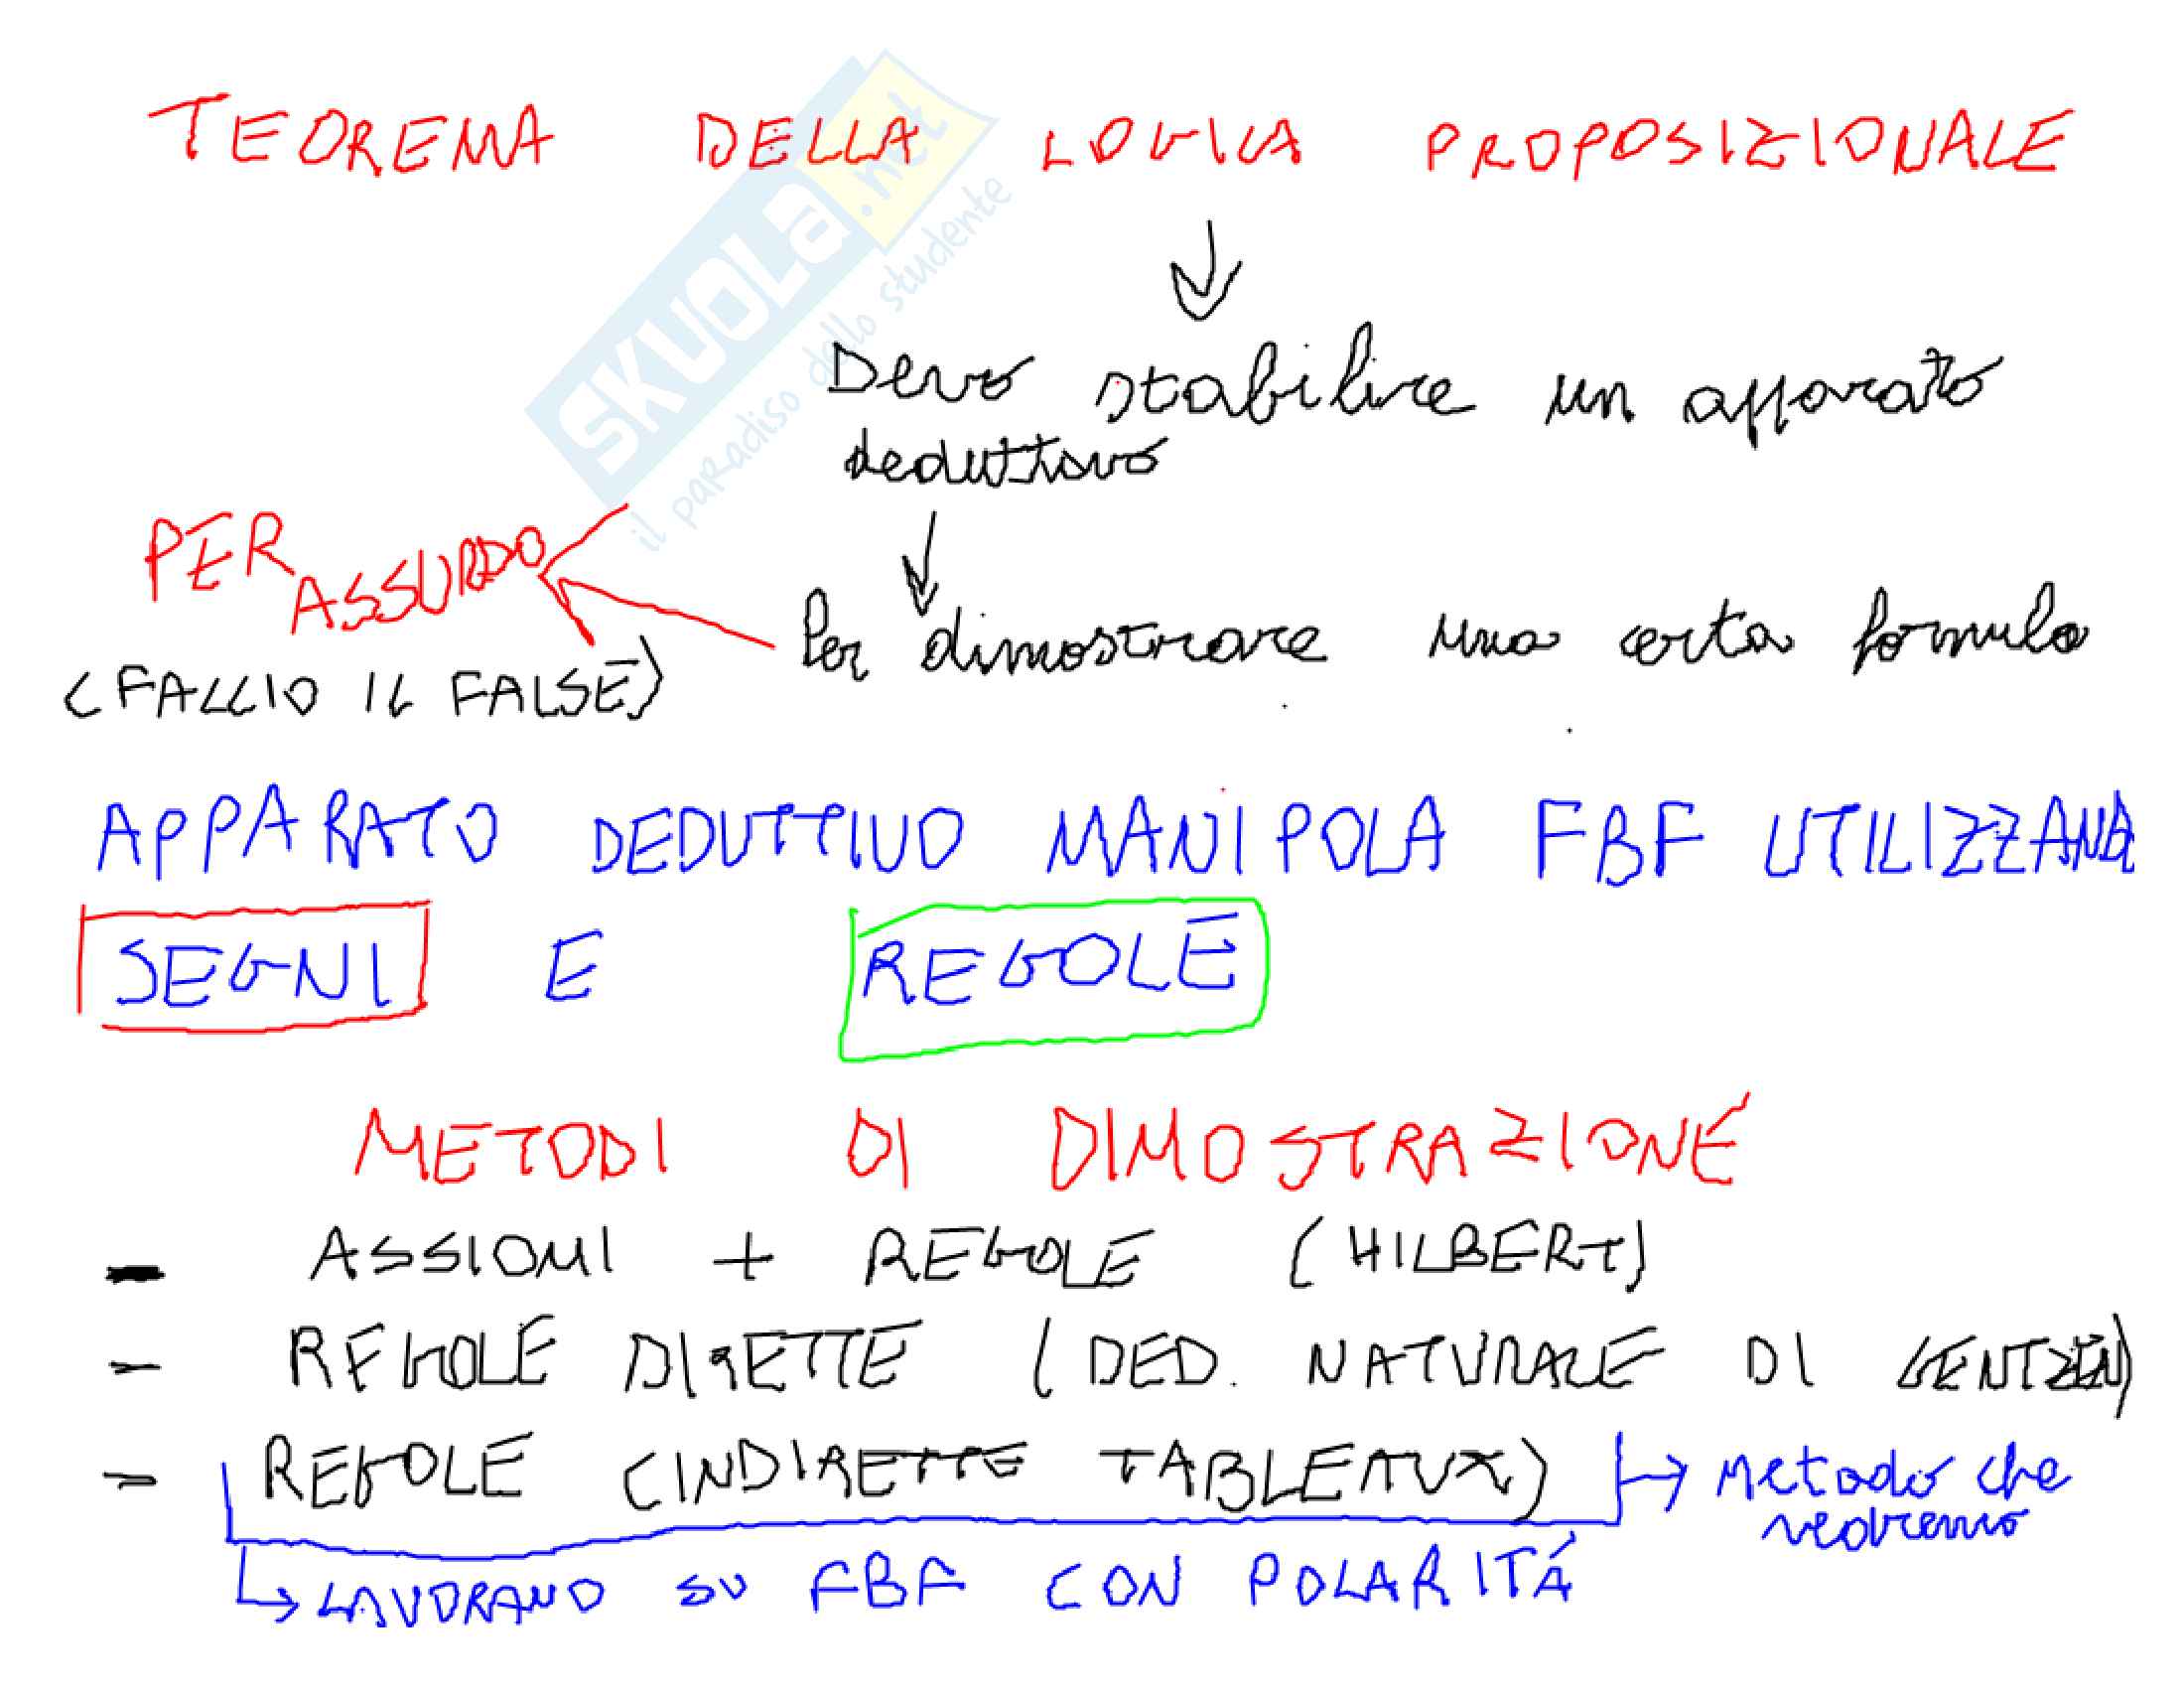 TEOREMA DELLA LOGICA PROPOSIZIONALE
SKUOLA.net
il paradiso dello studente
Devo stabilire un apparato
deduttivo
PER ASSURDO
(FACCIO IL FALSE)
Per dimostrare una certa formula
APPARATO DEDUTTIVO MANIPOLA FBF UTILIZZANDO
SEGNI E REGOLE
METODI DI DIMOSTRAZIONE
- ASSIOMI + REGOLE (HILBERT)
- REGOLE DIRETTE (DED. NATURALE DI GENTZEN)
- REGOLE (INDIRETTE TABLEAUX) → Metodo che
vedremo
↳ LAVORANO SU FBF CON POLARITÁ